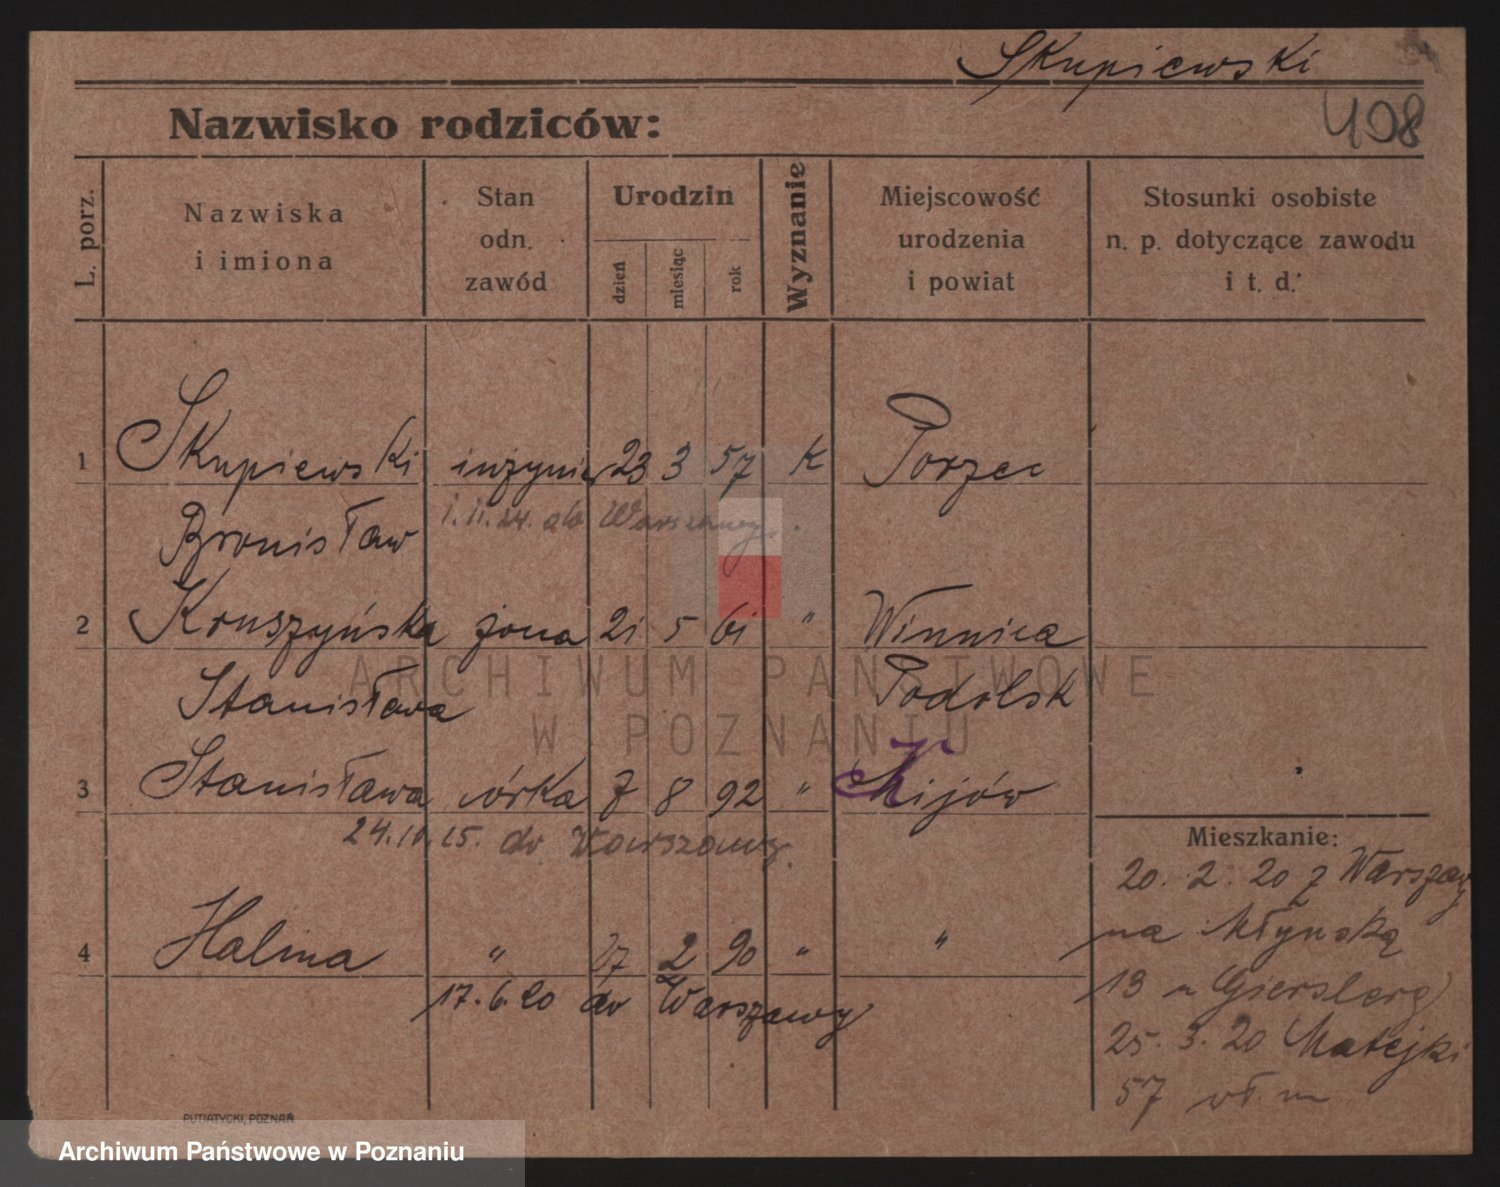 Skupiewski
408
Nazwisko rodziców:
L. porz.
Nazwiska
i imiona
Stan
odn.
zawód
Urodzin
dzień
miesiąc
rok
Wyznanie
Miejscowość
urodzenia
i powiat
Stosunki osobiste
n. p. dotyczące zawodu
i t. d.
1 Skupiewski inżynier 23 3 57 K Porzec
Bronisław
do Warszawy.
2 Kruszyńska żona 21 5 61 " Winnica
Stanisława Podolsk
3 Stanisława córka 7 8 92 " Kijów
do Warszawy.
4 Halina " 27 2 90 " "
17.6.20 do Warszawy
Mieszkanie:
20. 2. 20 z Warszawy
na Młyńską
13 u Giersberg
25. 3. 20 Matejki
57 wł. m
PUTIATYCKI, POZNAŃ
ARCHIWUM PAŃSTWOWE
W POZNANIU
Archiwum Państwowe w Poznaniu